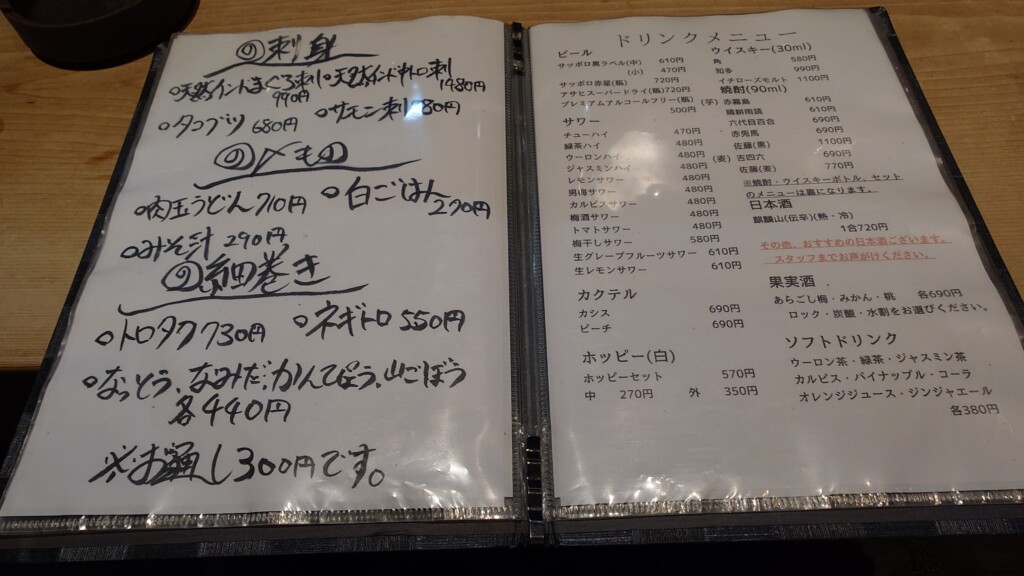 の刺身
○天然インドまぐろ刺 990円
○天然インド中トロ刺 1480円
○タコブツ 680円
○サーモン刺 780円
の〆もの
○肉玉うどん 710円
○白ごはん 270円
○みそ汁 290円
の細巻き
○トロタク 730円
○ネギトロ 550円
○なっとう、なみだ、かんぴょう、山ごぼう
各440円
※お通し300円です。
ドリンクメニュー
ビール
サッポロ黒ラベル(中) 610円
(小) 470円
サッポロ赤星(瓶) 720円
アサヒスーパードライ(瓶) 720円
プレミアムアルコールフリー(瓶)
500円
サワー
チューハイ 470円
緑茶ハイ 480円
ウーロンハイ 480円
ジャスミンハイ 480円
レモンサワー 480円
男梅サワー 480円
カルピスサワー 480円
梅酒サワー 480円
トマトサワー 480円
梅干しサワー 580円
生グレープフルーツサワー 610円
生レモンサワー 610円
カクテル
カシス 690円
ピーチ 690円
ホッピー(白)
ホッピーセット 570円
中 270円 外 350円
ウイスキー(30ml)
角 580円
知多 990円
イチローズモルト 1100円
焼酎(90ml)
(芋) 赤霧島 610円
晴耕雨読 610円
六代目百合 690円
赤兎馬 690円
佐藤(黒) 1100円
(麦) 吉四六 690円
佐藤(麦) 770円
※焼酎・ウイスキーボトル、セット
のメニューは裏になります。
日本酒
麒麟山(伝辛)(熱・冷)
1合720円
その他、おすすめの日本酒ございます。
スタッフまでお声がけください。
果実酒
あらごし梅・みかん・桃 各690円
ロック・炭酸・水割をお選びください。
ソフトドリンク
ウーロン茶・緑茶・ジャスミン茶
カルピス・パイナップル・コーラ
オレンジジュース・ジンジャエール
各380円